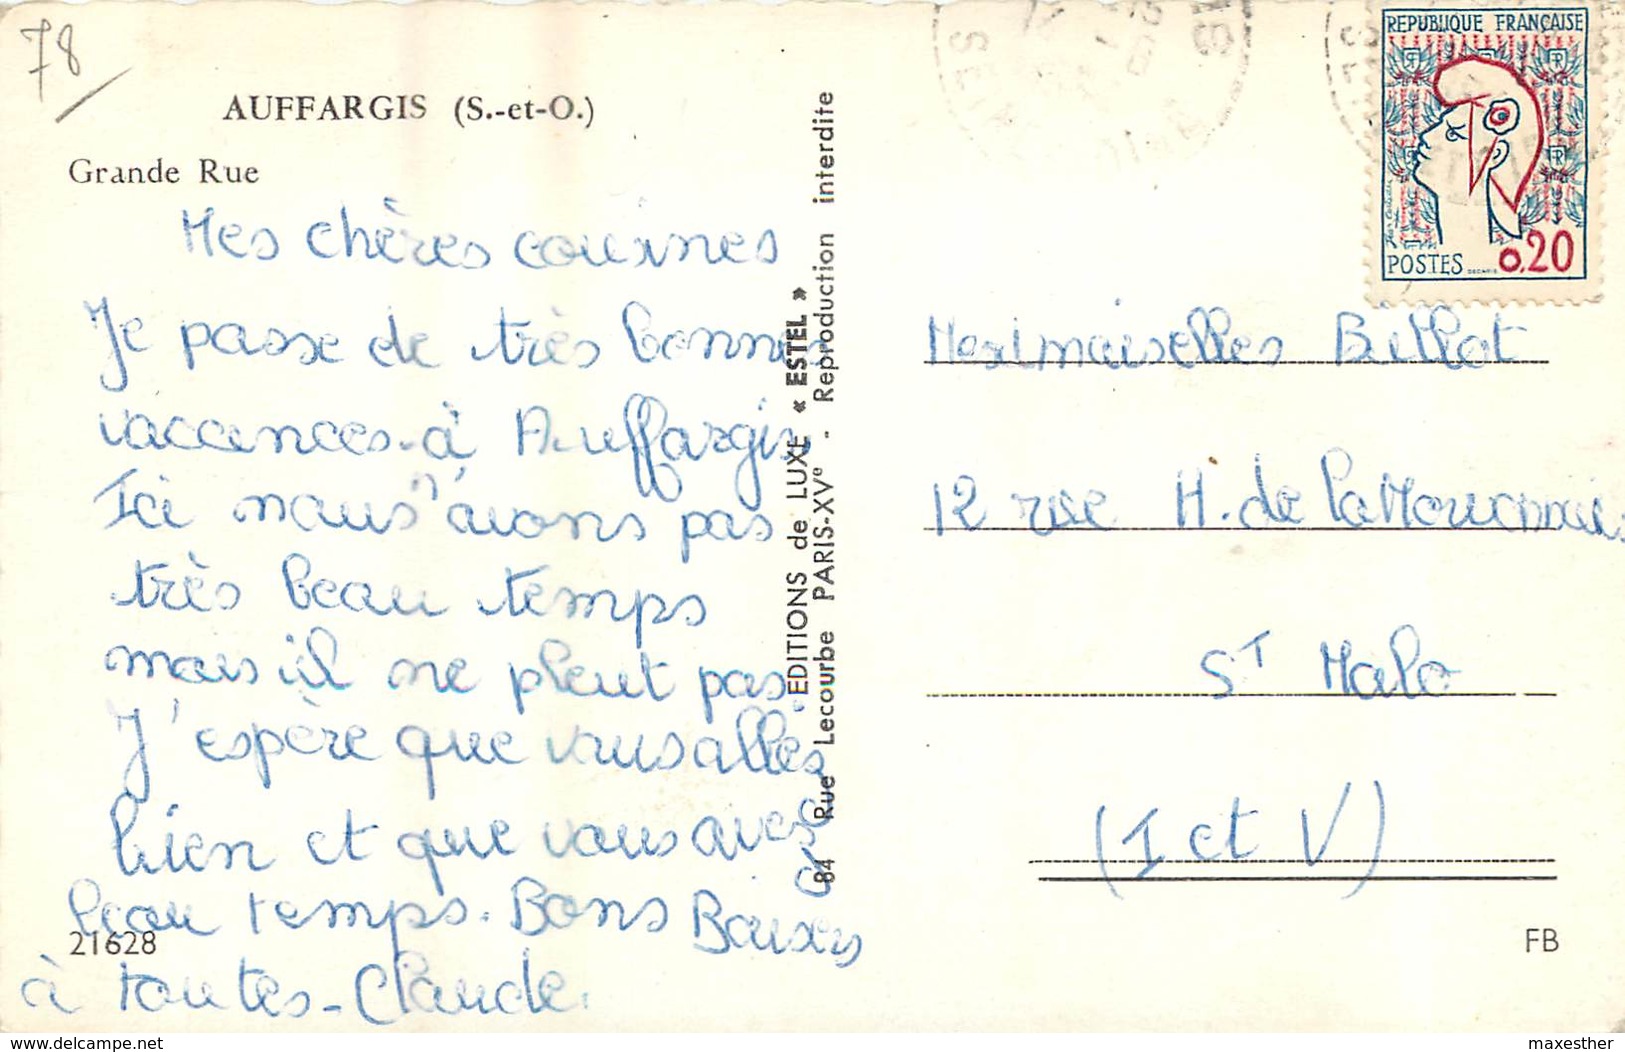 78
AUFFARGIS (S.-et-O.)
Grande Rue
Mes chères cousines
Je passe de très bonnes
vaccences à Auffargis
Ici nous n'avons pas
très beau temps
mais il ne pleut pas
J'espère que vous alles
bien et que vous aves
beau temps. Bons Baisers
à toutes - Claude.
21628
EDITIONS de LUXE « ESTEL »
84 Rue Lecourbe PARIS-XVe - Reproduction interdite
REPUBLIQUE FRANÇAISE
POSTES 0,20
DECARIS
Mesdmoiselles Billot
12 rue H. de
St Malo
(I et V)
FB
delcampe.net
maxesther